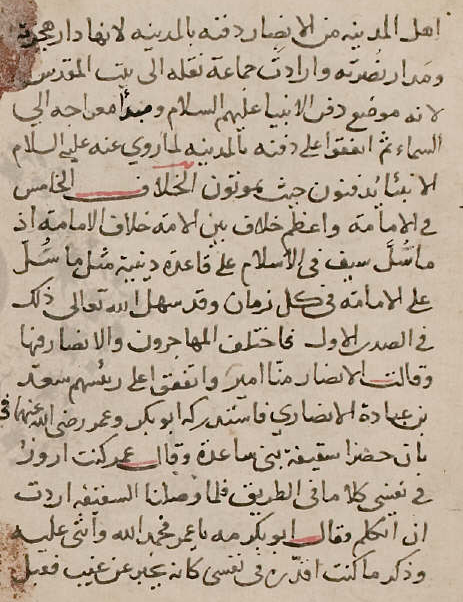 اهل المدينه من الانصار دفنه بالمدينه لانها دار هجرته
ومدار نصرته وارادت جماعة نقله الى بيت المقدس
لانه موضع دفن الانبيا عليهم السلام ومبدأ معراجه الى
السماء ثم اتفقوا على دفنه بالمدينه لما روي عنه عليه السلام
الانبيا يدفنون حيث يموتون الخلاف الخامس
في الامامة واعظم خلاف بين الامة خلاف الامامة اذ
ما سُلَّ سيف في الاسلام على قاعدة دينية مثل ما سُلَّ
على الامامة في كل زمان وقد سهل الله تعالى ذلك
في الصدر الاول فاختلف المهاجرون والانصار فيها
وقالت الانصار منا امير واتفقوا على رئيسهم سعد
بن عبادة الانصاري فاستدركه ابو بكر وعمر رضي الله عنهما في
بان حضرا سقيفة بني ساعدة وقال عمر كنت ازور
في نفسي كلاما في الطريق فلما وصلنا السقيفه اردت
ان اتكلم فقال ابو بكر مه يا عمر فحمد الله واثنى عليه
وذكر ما كنت اقدره في نفسي كانه يخبر عن غيب فقبل